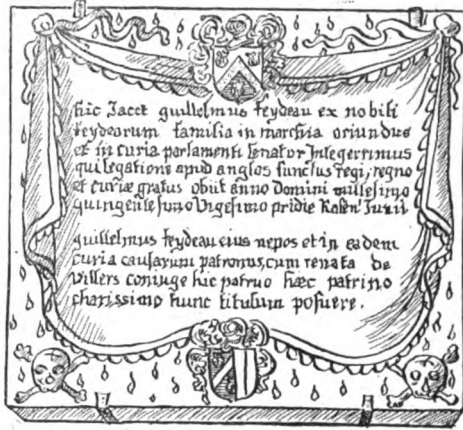 hic Jacet guillelmus feydeau ex nobili
feydeorum familia in marchia oriundus
et in curia parlamenti senator Integerrimus
qui legatione apud anglos functus regi, regno
et curiæ gratus obiit anno Domini millesimo
quingentesimo vigesimo pridie Kalen' Junii
guillelmus feydeau eius nepos et in eadem
curia causarum patronus, cum renata de
villers coniuge hic patruo hæc patrino
charissimo hunc titulum posuere.